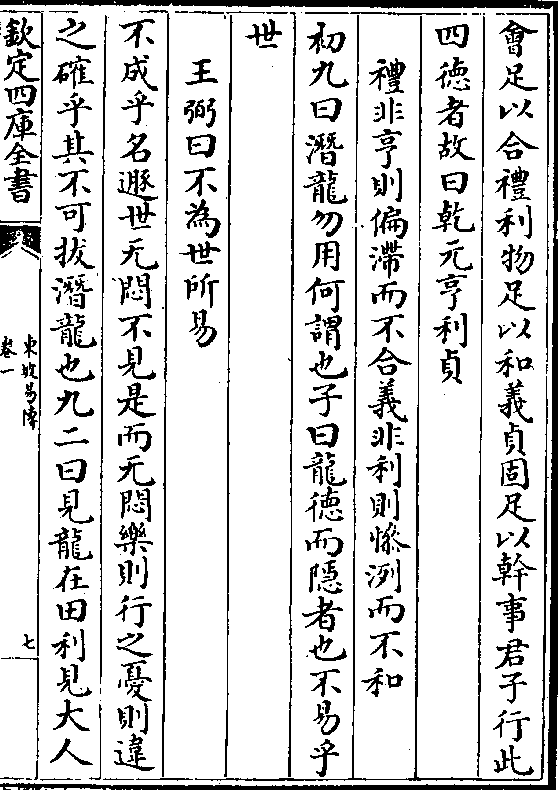 會足以合禮利物足以和義貞固足以幹事君子行此
四徳者故曰乾元亨利貞
禮非亨則偏滯而不合義非利則慘洌而不和
初九曰潛龍勿用何謂也子曰龍徳而隱者也不易乎
世
王弼曰不為世所易
不成乎名遯世无悶不見是而无悶樂則行之憂則違
之確乎其不可拔潛龍也九二曰見龍在田利見大人
欽定四庫全書
東坡易傳
卷一
七